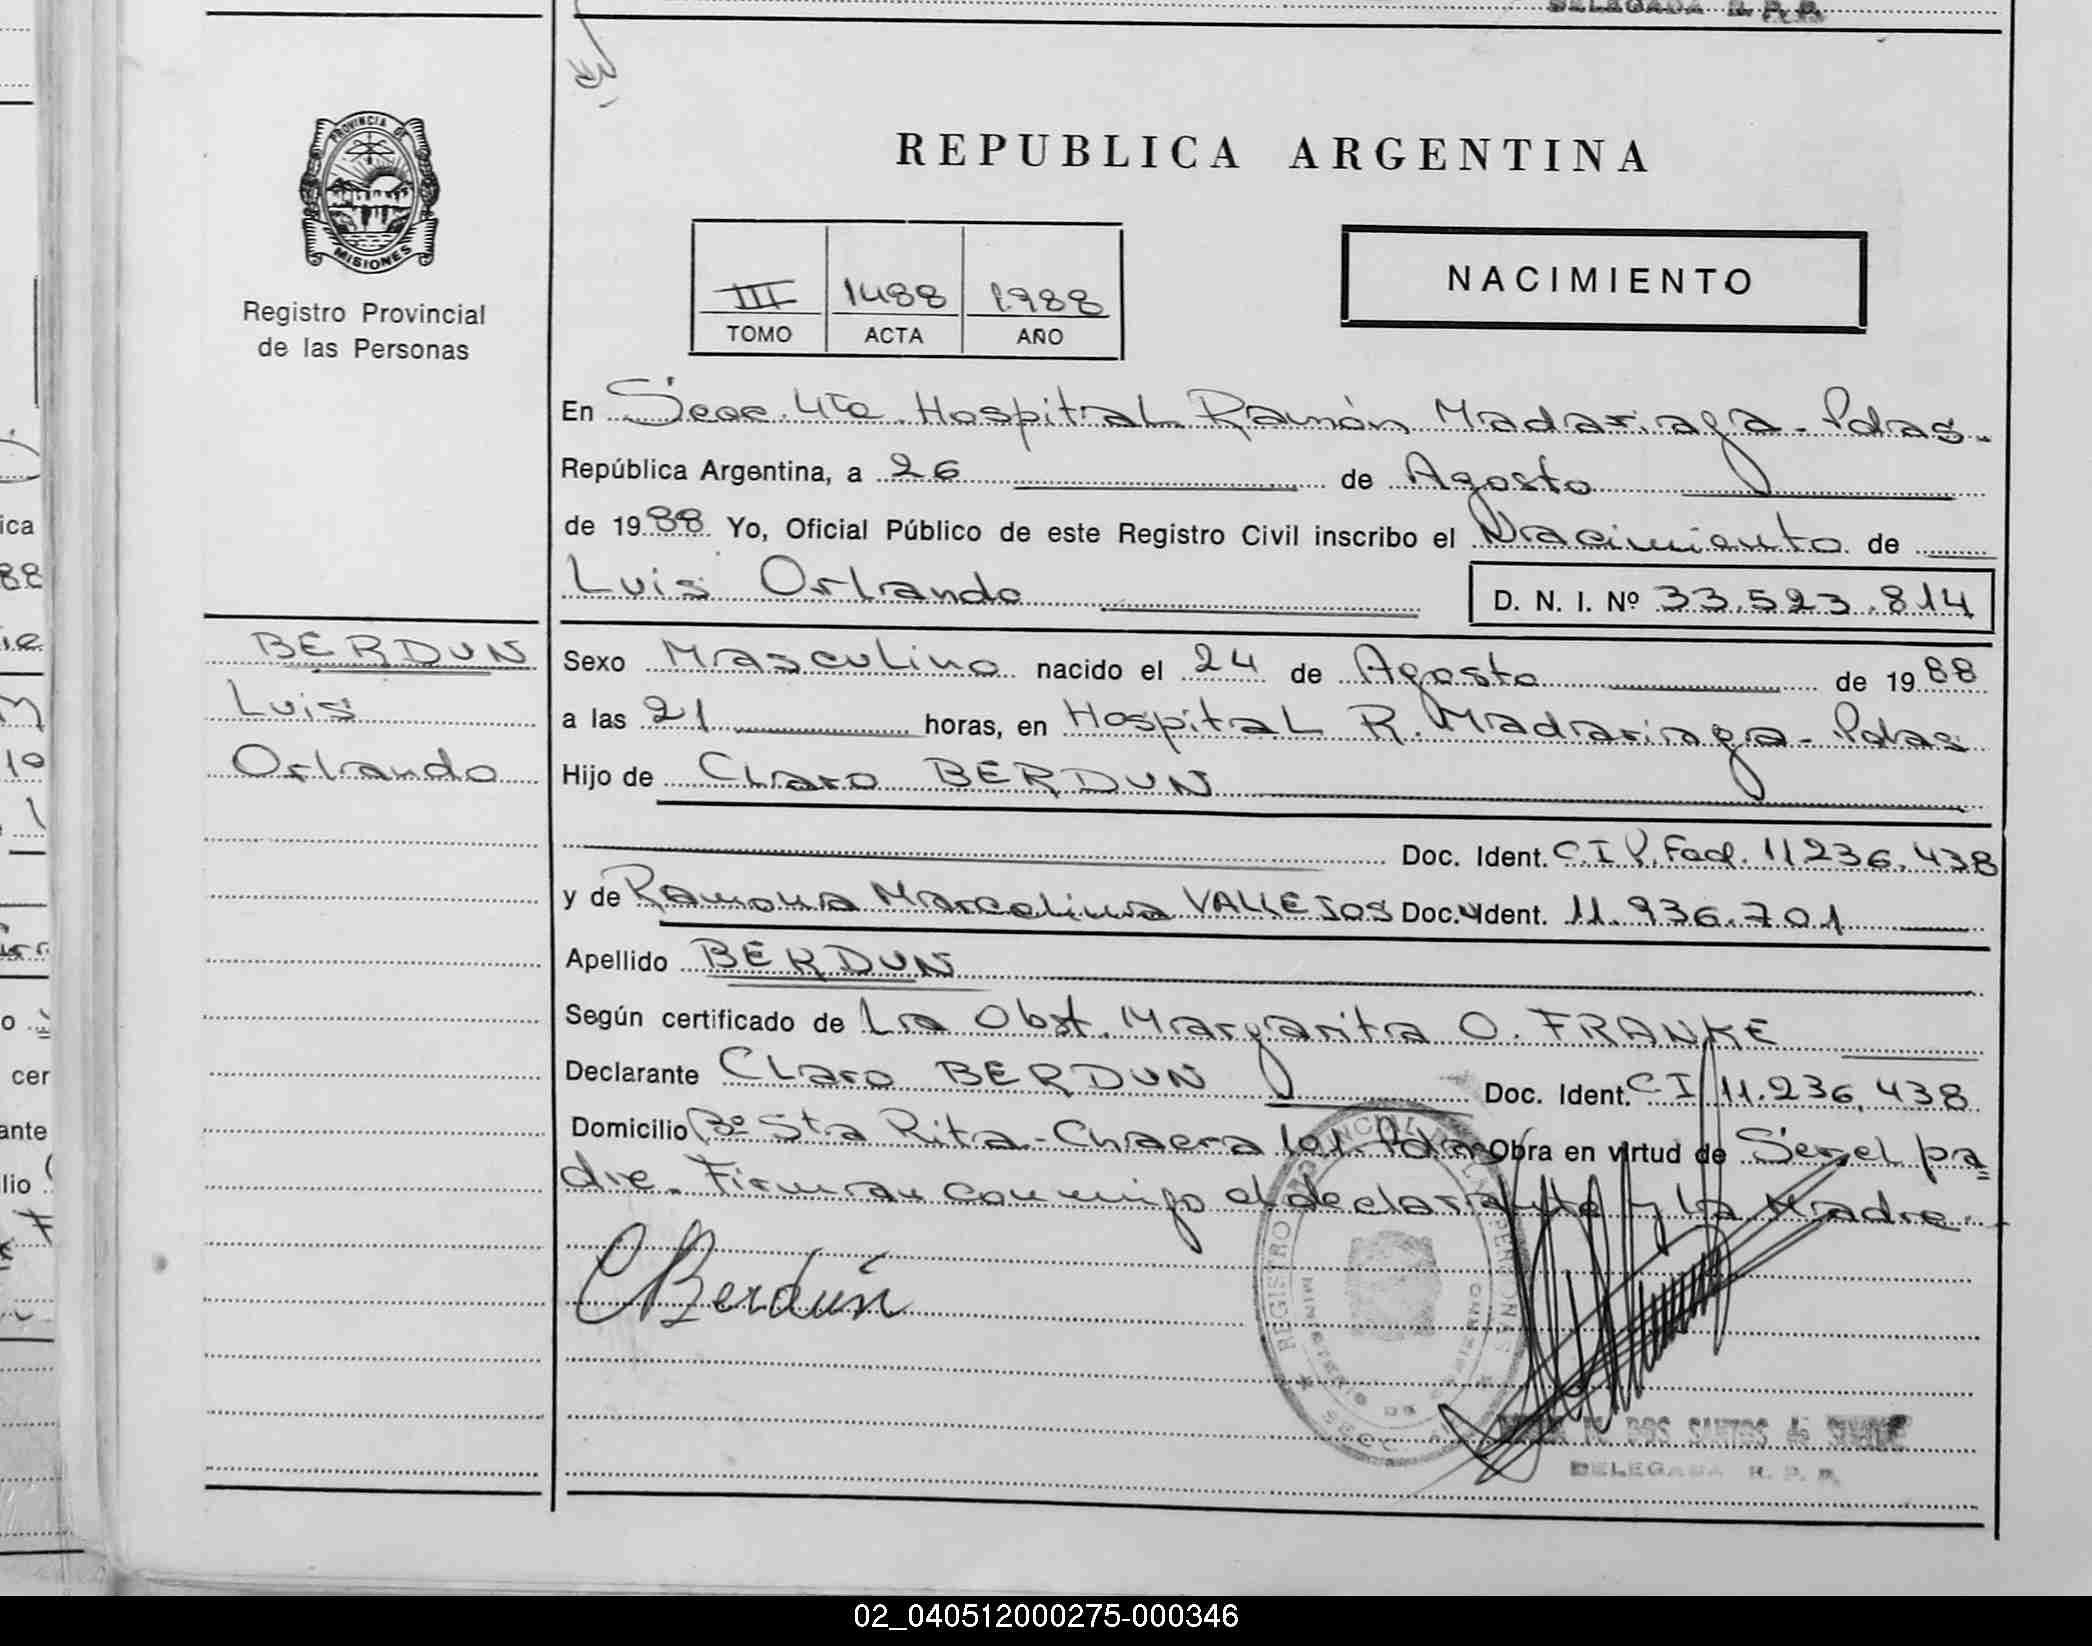 DELEGADA R. P. P.
PROVINCIA DE
MISIONES
Registro Provincial
de las Personas
REPUBLICA ARGENTINA
III 1488 1988
TOMO ACTA AÑO
NACIMIENTO
En Secc. 4ta. Hospital Ramón Madariaga - Pdas.
República Argentina, a 26 de Agosto
de 1988 Yo, Oficial Público de este Registro Civil inscribo el Nacimiento de
Luis Orlando
D. N. I. Nº 33.523.814
BERDUN
Luis
Orlando
Sexo Masculino nacido el 24 de Agosto de 1988
a las 21 horas, en Hospital R. Madariaga - Pdas
Hijo de Claro BERDUN
Doc. Ident. C I P. Fed. 11236.438
y de Ramona Marcelina VALLEJOS Doc. Ident. 11.936.701
Apellido BERDUN
Según certificado de La Obst. Margarita O. FRANKE
Declarante Claro BERDUN Doc. Ident. C I 11.236.438
Domicilio Bº Sta Rita - Chacra 101. Pdas Obra en virtud de Ser el pa=
dre. Firman conmigo el declarante y la Madre.
CBerdún
REGISTRO PROVINCIAL DE LAS PERSONAS
MINISTERIO DE GOBIERNO
SECC.
DOS SANTOS de
DELEGADA R. P. P.
02_040512000275-000346